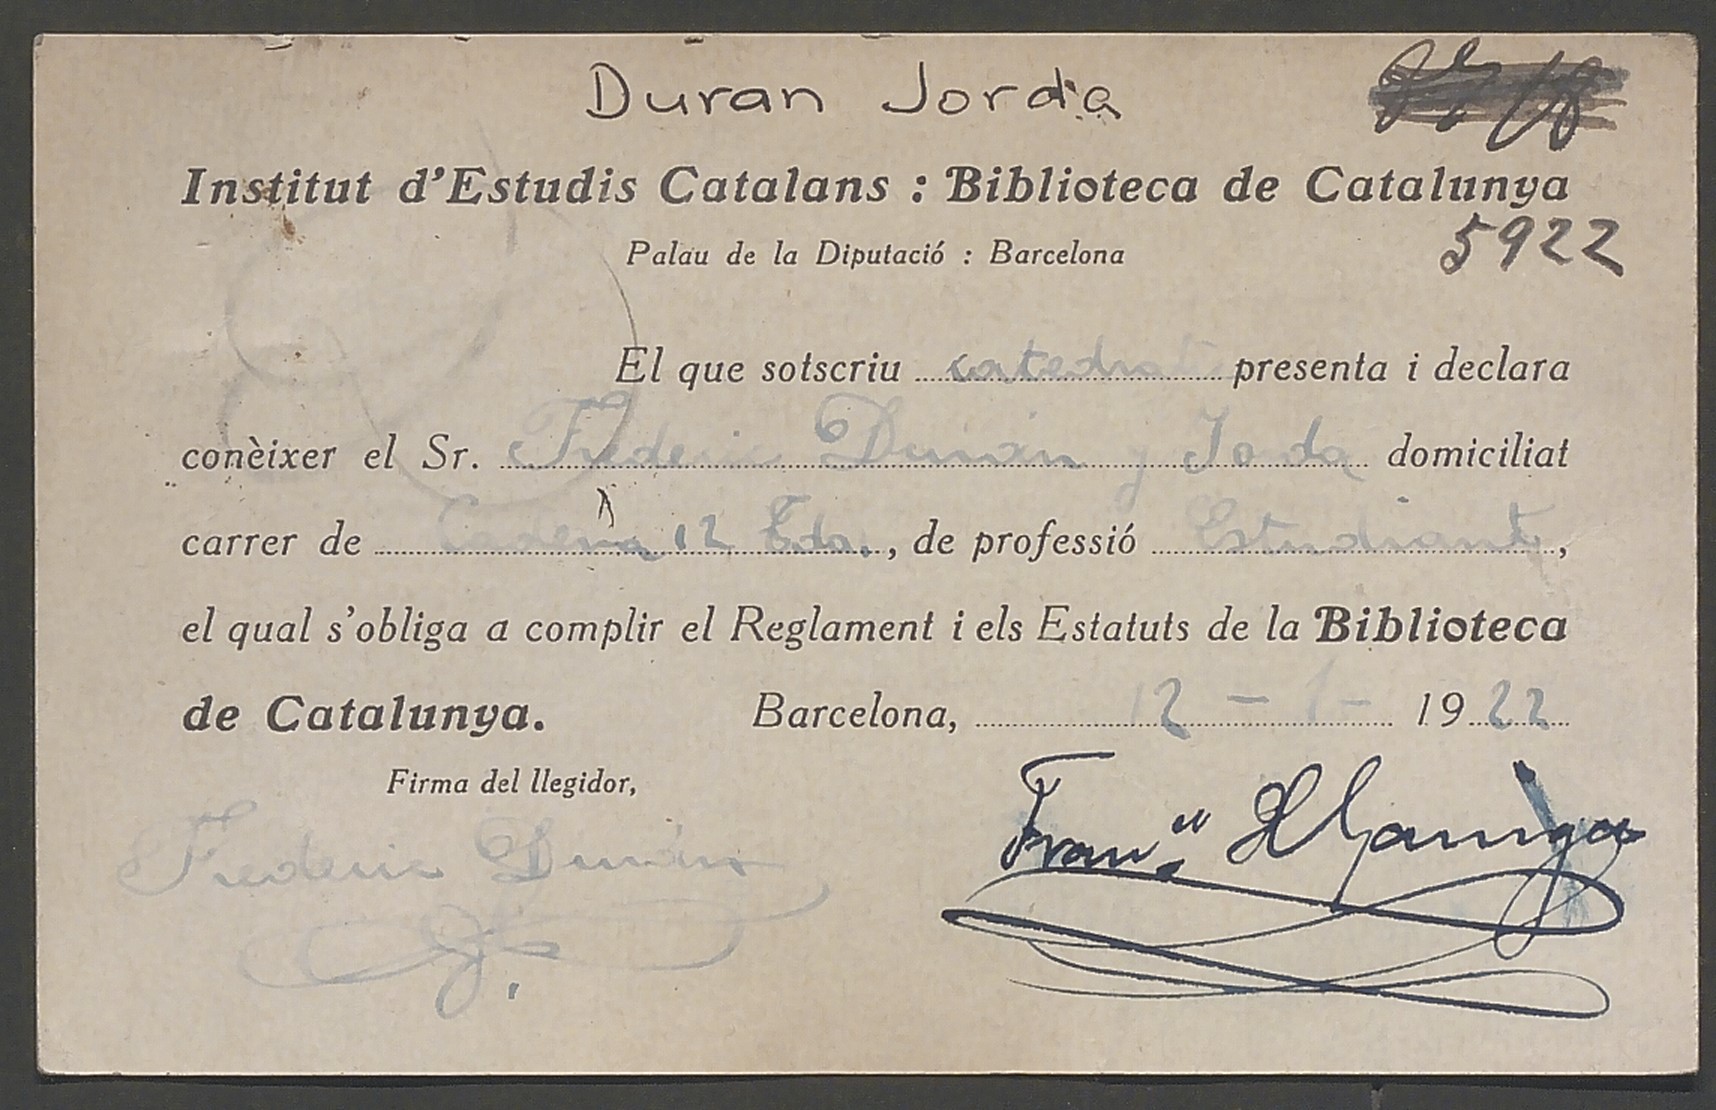 Duran Jorda
Institut d'Estudis Catalans : Biblioteca de Catalunya
5922
Palau de la Diputació : Barcelona
El que sotscriu catedrat presenta i declara
conèixer el Sr. Frederic Durán y Jorda domiciliat
carrer de Cadena 12 Eda., de professió Estudiant,
el qual s'obliga a complir el Reglament i els Estatuts de la Biblioteca
de Catalunya. Barcelona, 12 - 1 - 1922
Firma del llegidor,
Frederic Durán